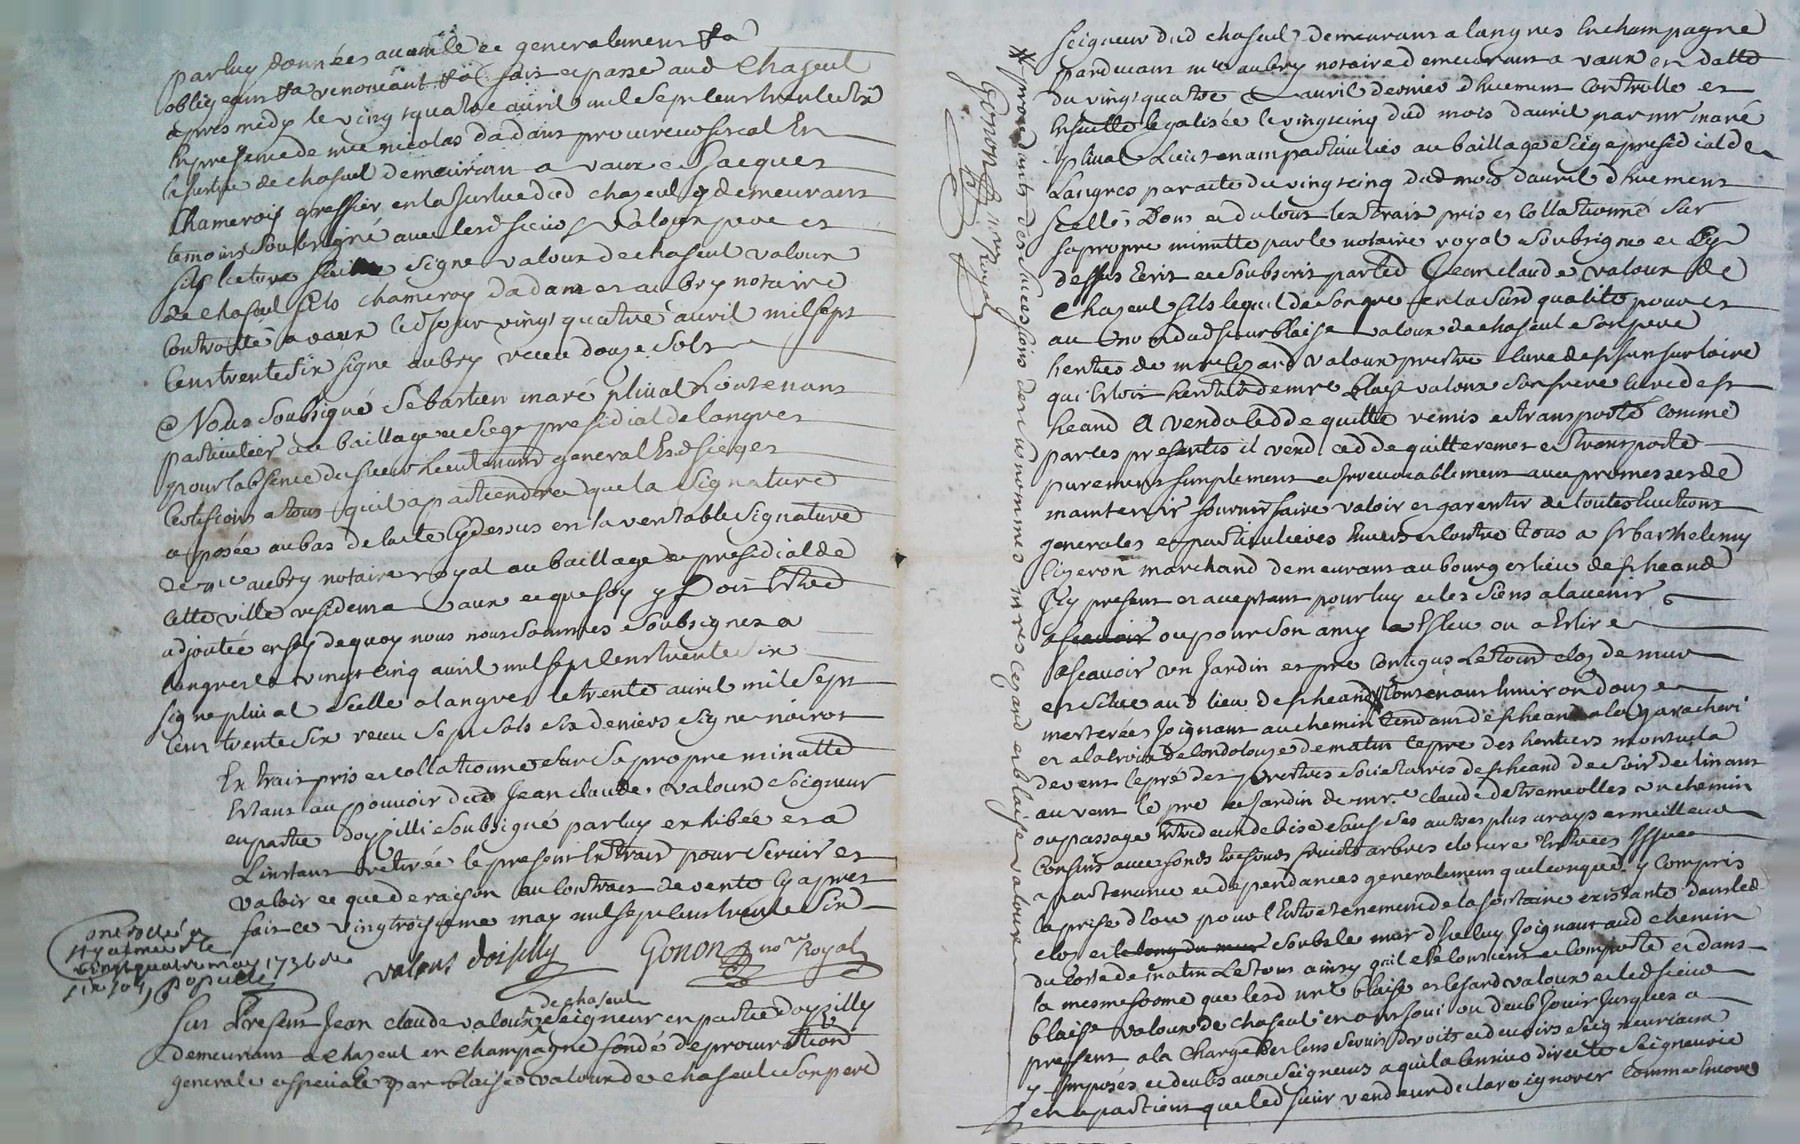 par luy données avamïle ec generalement &a
obligeant &a renoncant &a fait ec passé aud Chaseul
apres midy le vingt quatre avril mil sept cent trente six
En presence de me nicolas dadant procureur fiscal En
la justice de chaseul demeurant a vaux ec Jacques
Chamerois greffier en la Justice dud chaseul y demeurant
temoins Soubsigné avec lesd sieurs valoux pere et
fils lecture signe valoux de chaseul valoux
de chaseul fils chameroy dadant et aubry notaire
Controllé a vaux led Jour vingt quatre avril mil sept
Cent trente Six signe aubry receu douze sols
Nous Soubsigné Sebastien maré plivat Lieutenant
particulier au baillage ec Siege presidial de langres
pour l'absence du sieur Lieutenant general Esd sieges
Certifions a tous quil apartiendra que la Signature
aposée au bas de l'acte Cydessus est la veritable Signature
de me aubry notaire royal au baillage ec presidial de
cette ville residant a vaux ec que foy y Doit Estre
adjoutée en foy de quoy nous nous sommes Soubsignez a
langres le vingt Cinq avril mil sept Cent trente six
signe plivat scellé a langres le trente avril mil Sept
Cent trente Six receu Sept Sols six deniers signe noirot
Extrait pris et collationné sur Sa propre minutte
Estant au pouvoir dud Jean claude valoux Seigneur
en partie doyzilli Soubsigné par luy exhibée et a
L'instant retirée le present Extrait pour Servir et
valoir ec que de raison au Contract de vente Cy apres
fait ce vingt troisieme may mil sept cent trente Six
valous doisilly Gonon nore Royal
Controllé a
vingt quatre may 1736
six sols
de chaseul
Sur Present Jean claude valoux Seigneur en partie doyzilly
demeurant a chaseul en champagne fondé de procuration
generale especiale par blaise valoux de chaseul Son pere
Seigneur dud chaseul demeurant a langres En champagne
pardevant me aubry notaire demeurant a vaux en datte
du vingt quatre avril dernier dhuement Controllé et
Ensuitte legalisée le vingt cinq dud mois davril par mr maré
plivat Lieutenant particulier au baillage Siege presidial de
Langres par acte du vingt cinq dud mois davril dhuement
scellé, Dont ec du tout lextrait pris et Collationné Sur
sa propre minutte par le notaire royal Soubsigné ec Cy
dessus Ecrit ec Soubscrit par led Jean claude valoux de
Chaseul fils lequel de Son gre en la Susd qualité pour et
au nom dud sieur blaise valoux de chaseul Son pere
heritier de mre Cezard valoux prestre Curé de
qui Estoit heritier de mre blaise valoux son frere Curé de st
heand A vendu Cedde quitté remis et transporté Comme
par les presentes il vend cedde quitte remet et transporte
purement Simplement et irrevocablement avec promesse de
maintenir fournir faire valoir et garentir de toutes Evictions
generales et particulieres Envers et Contre tous a sr barthelemy
lizeron marchand demeurant au bourg et lieu de st heand
Icy present et acceptant pour luy et les Siens a lavenir
ascavoir ou pour Son amy a Esleu ou a Eslire
ascavoir un Jardin et pre Contigus Le tout clos de mur
et situé aud lieu de st heand Contenant Environ douze
mesterées Joignant au chemin tendant de st heand a
et a la croix de de matin le pre des heritiers
de vent le pré des prestres Societaires de st heand de Soir declinant
au vent le pre ec Jardin de mre claude detremeolles un chemin
ou passage de bise Sauf Ses autres plus vrays et meilleurs
Confins avec fonds tresfonds fruicts arbres closure Entrées Issues
apartenance ec dependances generalement quelconques y Compris
la prise deau pour l'Entretenement de la fontaine existante dans led
clos et le long du mur Soubs le mur dhelluy Joignant aud chemin
du coste de matin Le tout ainsy quil Se Consiste ec Comporte ec dans
la mesme forme que lesd mre blaise et Cesard valoux et led sieur
blaise valoux de chaseul en ont Joui ou deub Jouir Jusques a
present a la charge des Cens Servis droits ec devoirs Seigneuriaux
y Imposés ec deubs aux Seigneurs a qui la Censive directe Seigneurie
en apartient que led sieur vendeur declare ignorer Comme Encore
provenants des successions dernierement nommés mres Cezard et blaise valoux
Gonon nore Royal